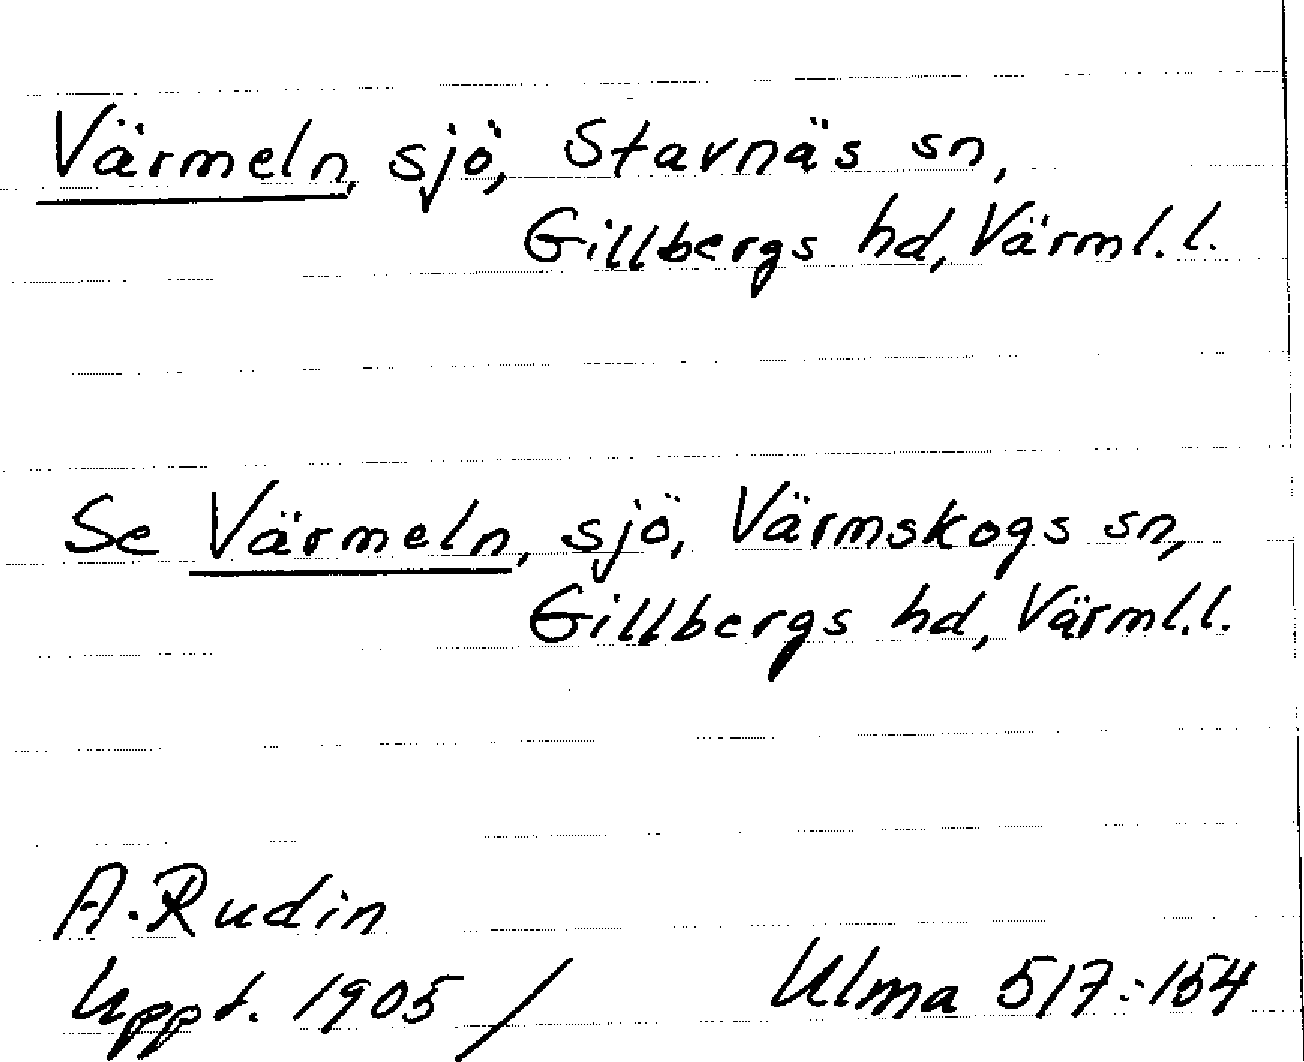 Värmeln, sjö, Stavnäs sn,
Gillbergs hd, Värml.l.
Se Värmeln, sjö, Värmskogs sn,
Gillbergs hd, Värml.l.
A. Rudin
Uppt. 1905 / Ulma 517:154